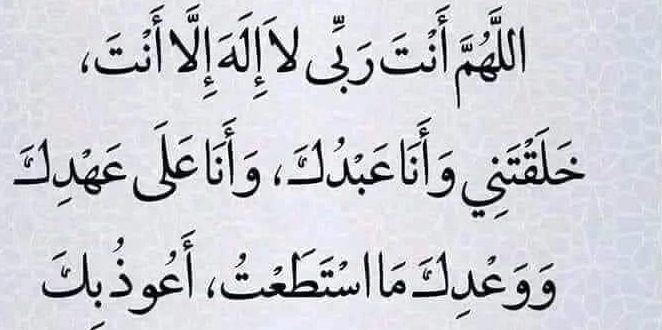 اللَّهُمَّ أَنْتَ رَبِّى لاَ إِلَهَ إِلَّا أَنْتَ،
خَلَقْتَنِي وَأَنَا عَبْدُكَ، وَأَنَا عَلَى عَهْدِكَ
وَوَعْدِكَ مَا اسْتَطَعْتُ، أَعُوذُ بِكَ